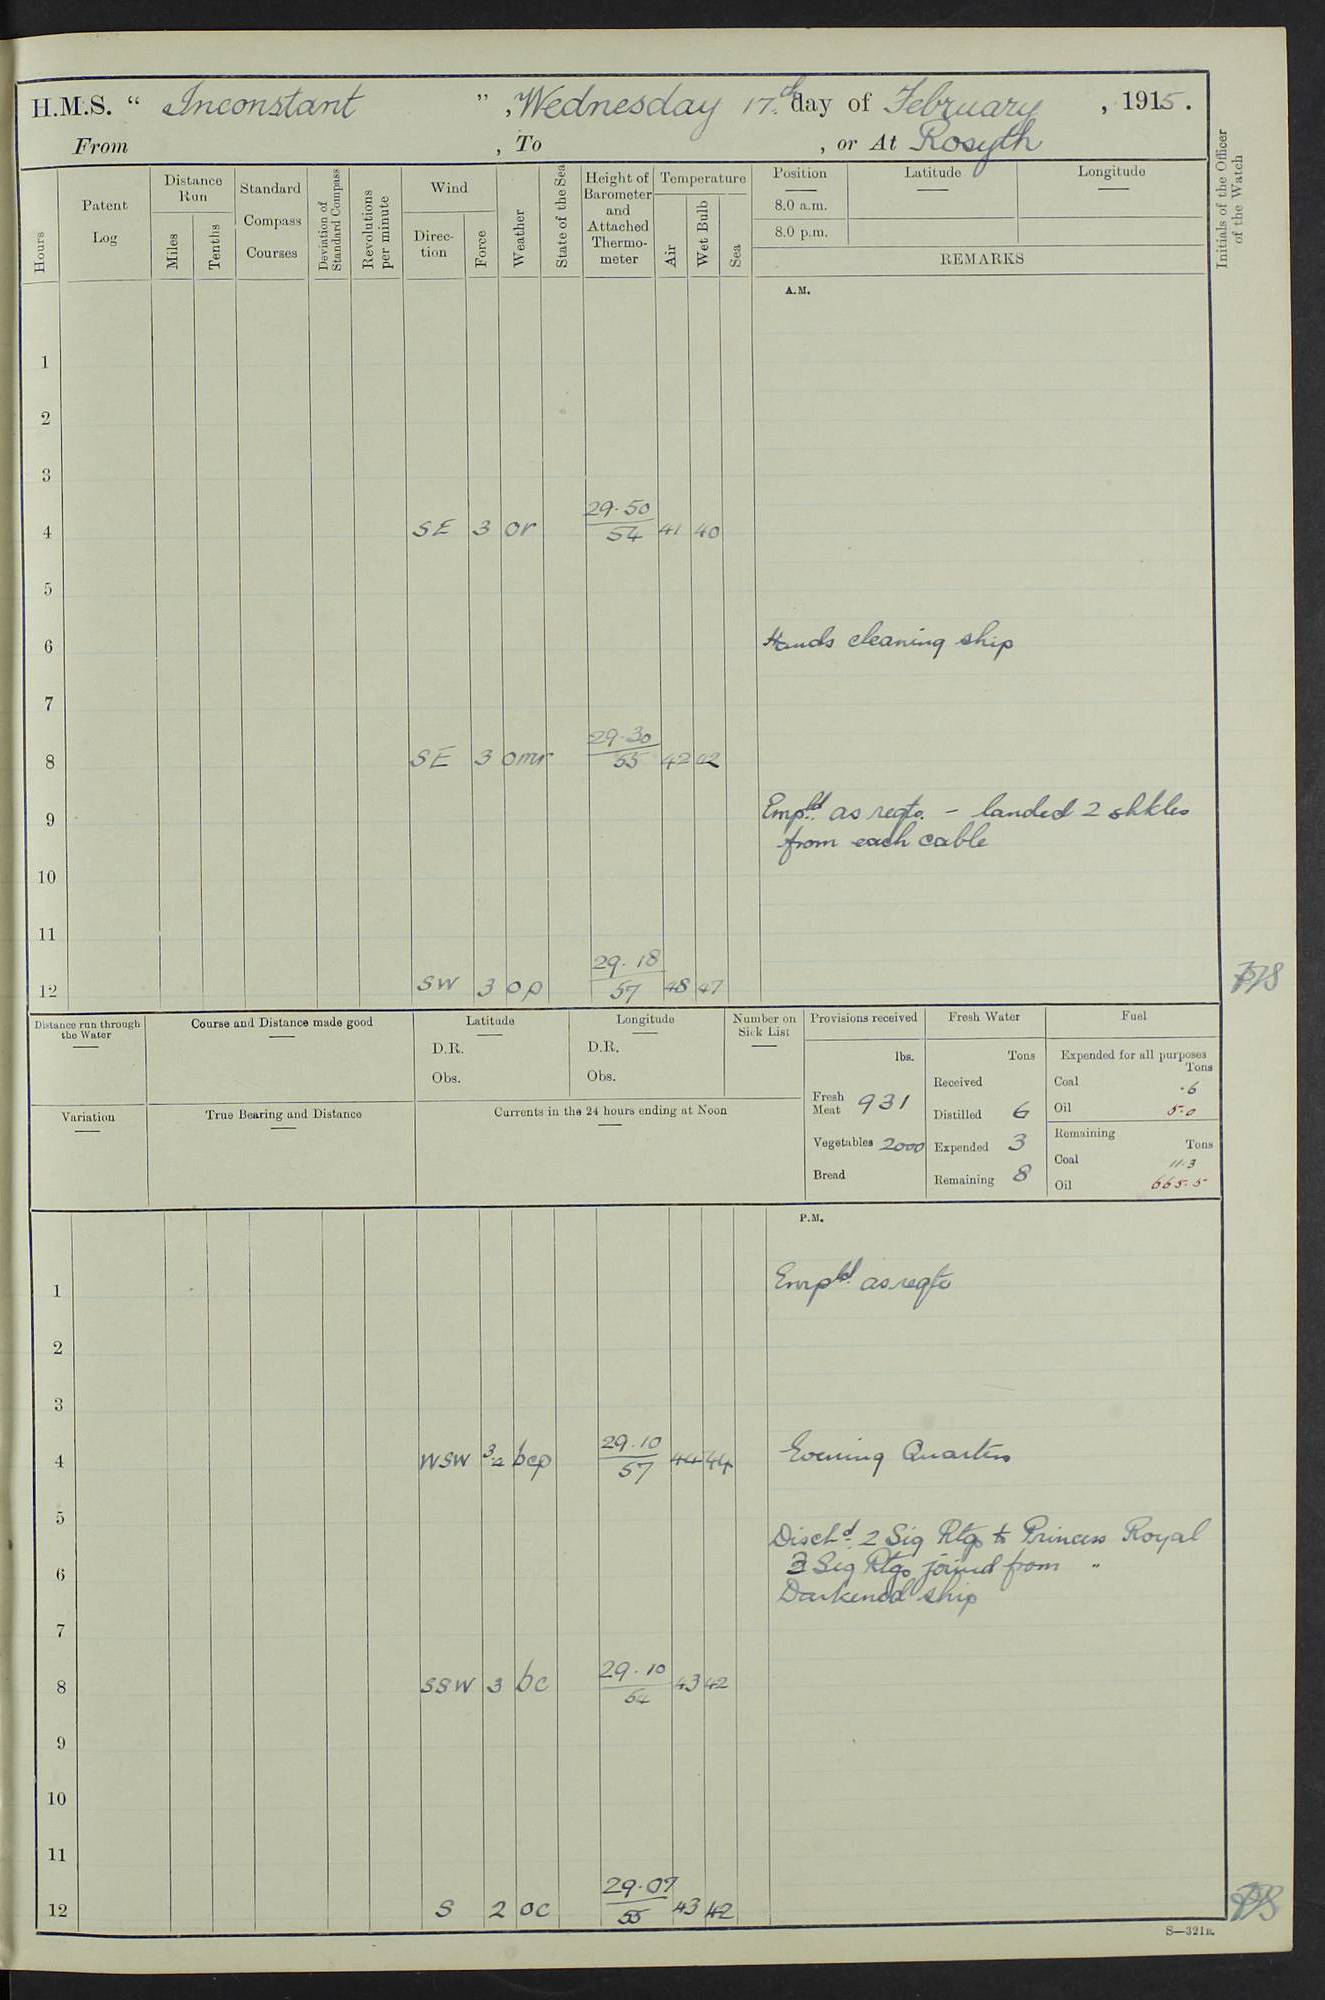 H.M.S. “ Inconstant ” , Wednesday 17th day of February , 1915.
From , To , or At Rosyth
Hours
Patent Log
Distance Run
Miles
Tenths
Standard Compass Courses
Deviation of Standard Compass
Revolutions per minute
Wind
Direc-tion
Force
Weather
State of the Sea
Height of Barometer and Attached Thermo-meter
Temperature
Air
Wet Bulb
Sea
Position
8.0 a.m.
8.0 p.m.
Latitude
Longitude
REMARKS
Initials of the Officer of the Watch
A.M.
1
2
3
4 SE 3 or 29.50 54 41 40
5
6 Hands cleaning ship
7
8 SE 3 omr 29.30 55 42 42
9 Emp.ld as reqte. – landed 2 shkles
from each cable
10
11
12 SW 3 op 29.18 57 48 47
Distance run through the Water
Course and Distance made good
Latitude
D.R.
Obs.
Longitude
D.R.
Obs.
Number on Sick List
Variation
True Bearing and Distance
Currents in the 24 hours ending at Noon
Provisions received
lbs.
Fresh Meat 931
Vegetables 2000
Bread
Fresh Water
Tons
Received
Distilled 6
Expended 3
Remaining 8
Fuel
Expended for all purposes
Tons
Coal .6
Oil 5.0
Remaining
Tons
Coal 11.3
Oil 665.5
P.M.
1 Emp.ld as reqte
2
3
4 WSW 3-2 bcp 29.10 57 44 44 Evening Quarters
5 Disch.d 2 Sig Rtgs to Princess Royal
6 3 Sig Rtgs joined from "
Darkened ship
7
8 SSW 3 bc 29.10 54 43 42
9
10
11
12 S 2 oc 29.07 55 43 42
S—321E.